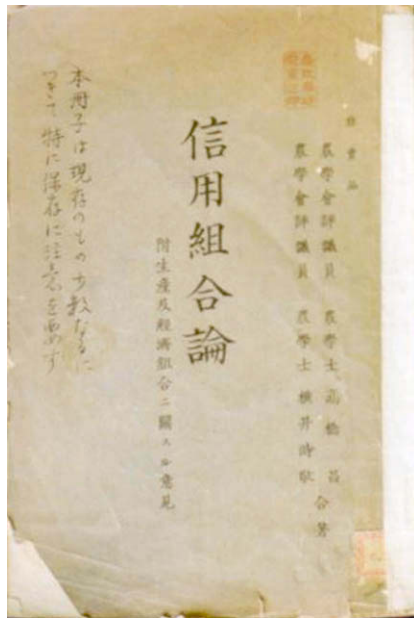 非賣品
農學會評議員 農學士 高橋昌
農學會評議員 農學士 橫井時敬
合著
信用組合論
附生產及經濟組合ニ關スル意見
本冊子は現存のもの少数なるに
つきて特に保存に注意を要す